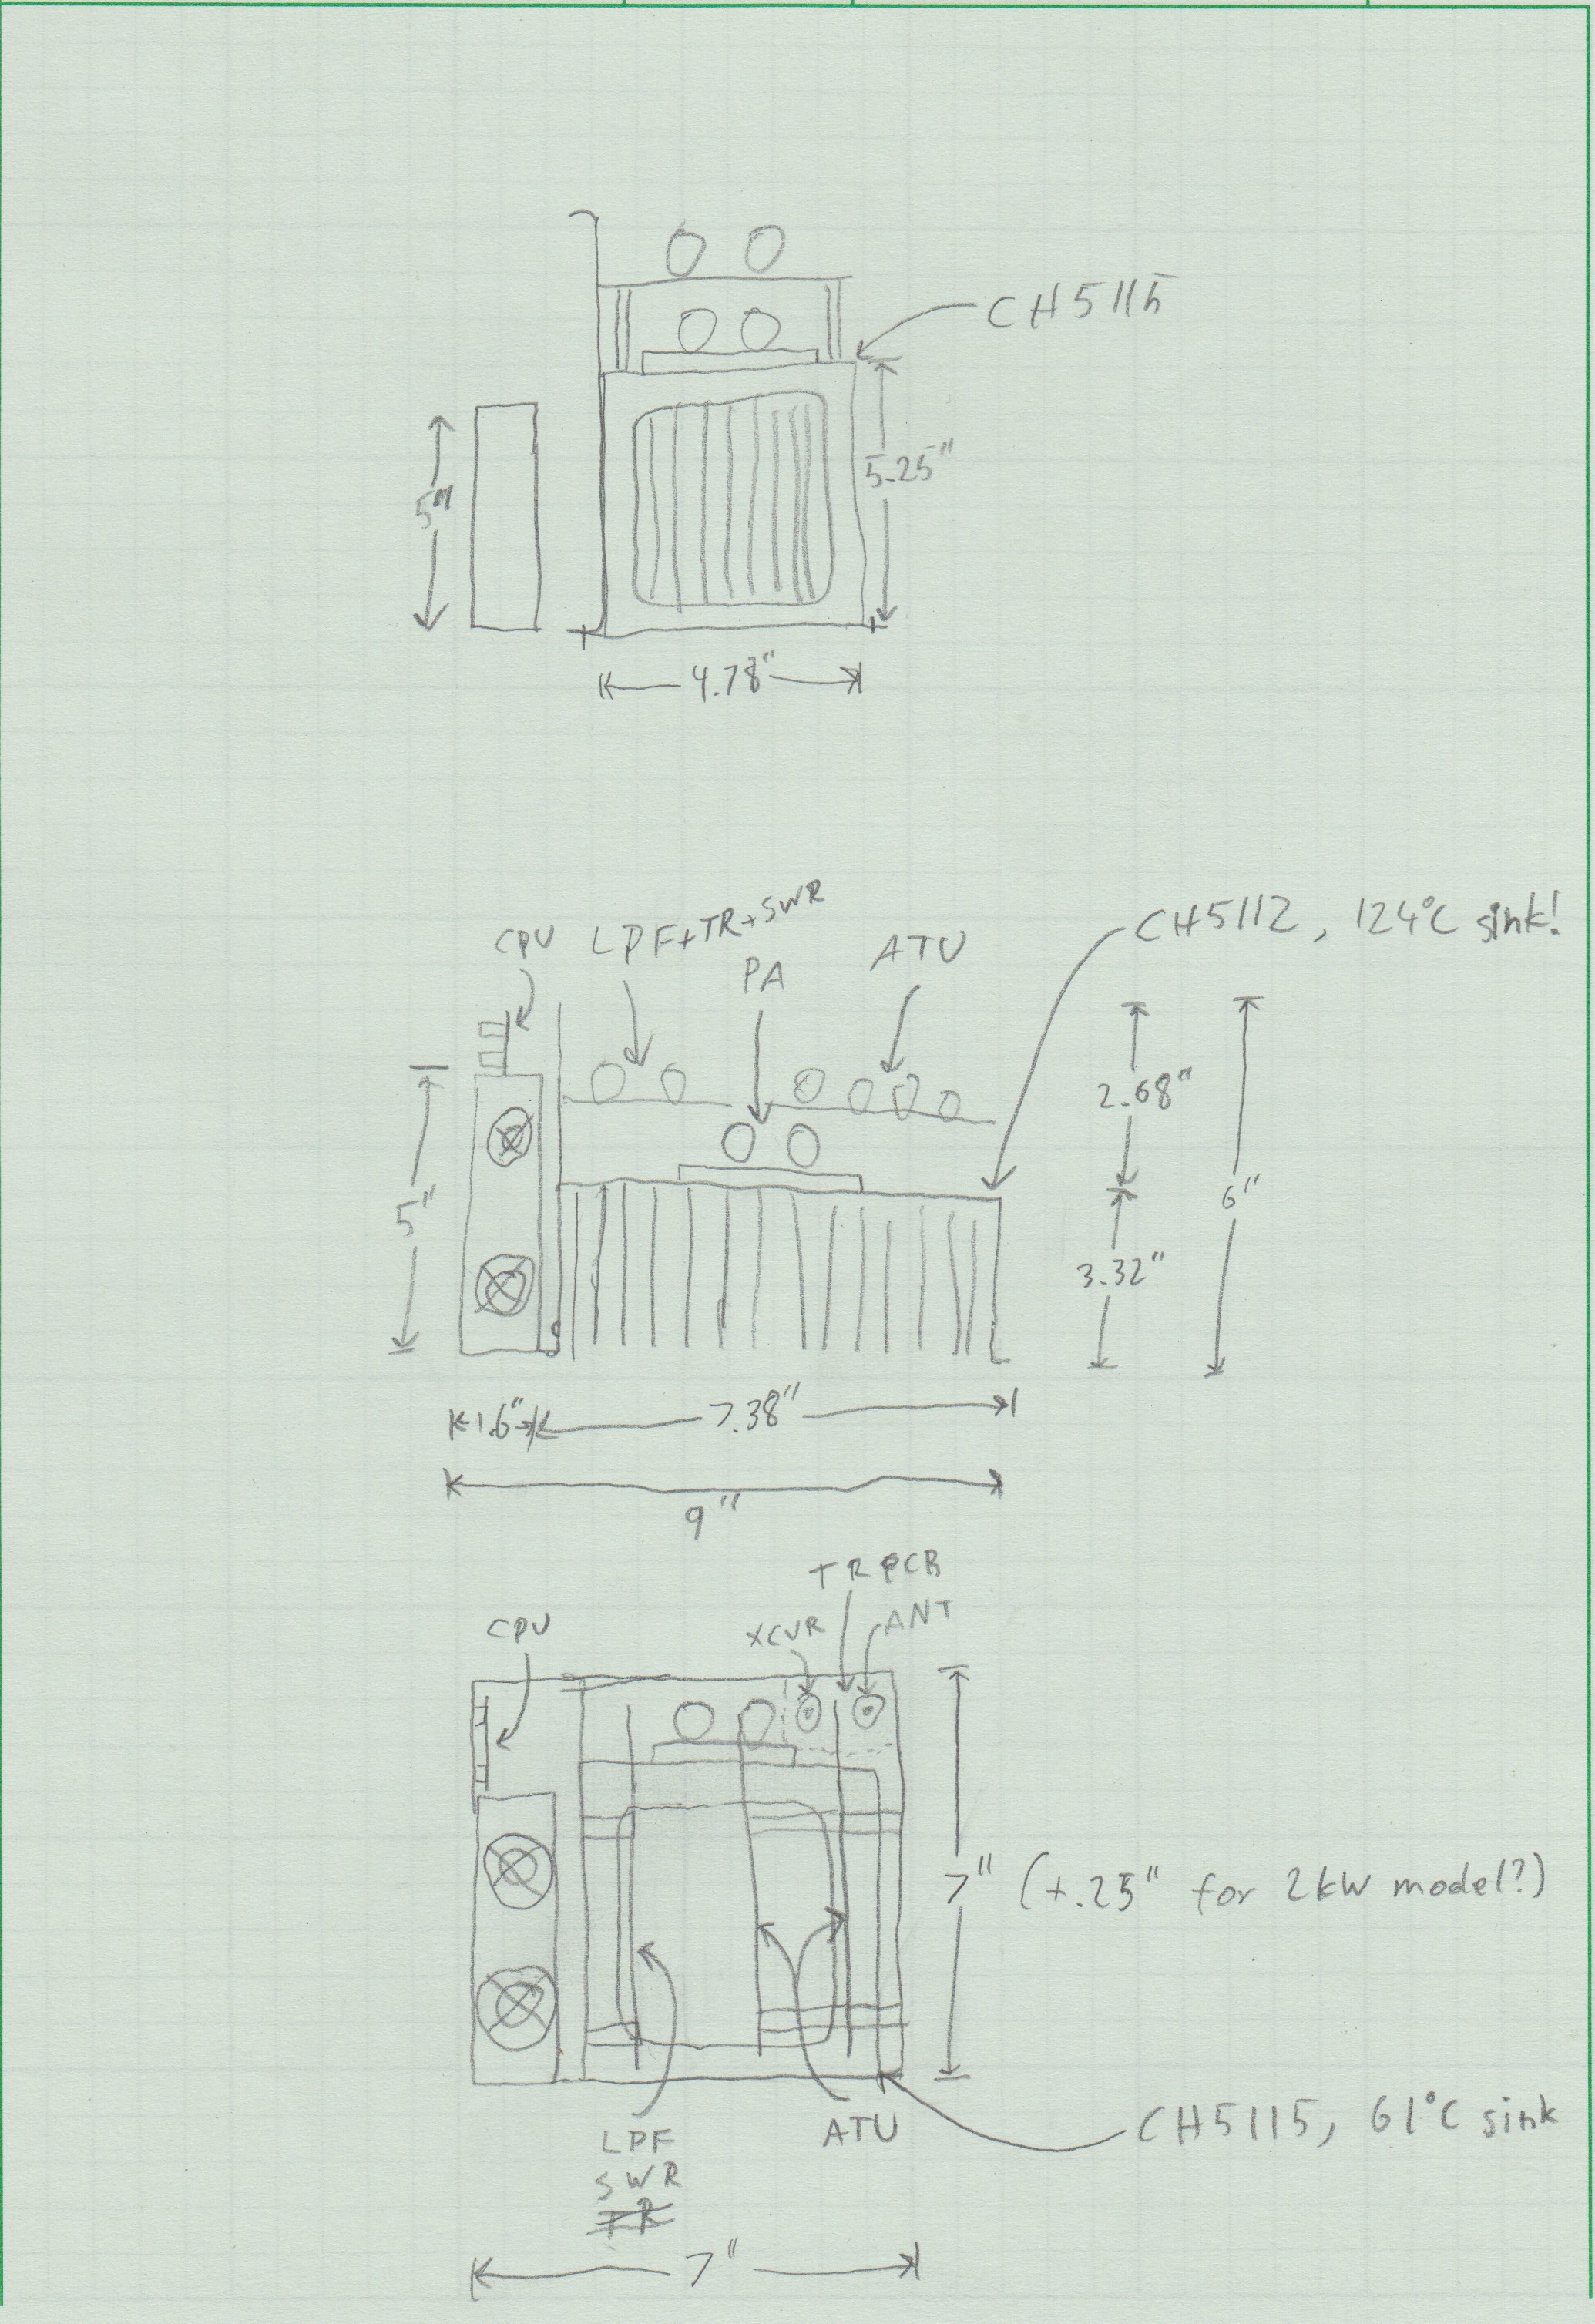 CH5115
5"
5.25"
4.78"
CPU
LPF+TR+SWR
PA
ATU
CH5112, 124°C sink!
5"
2.68"
6"
3.32"
1.6"
7.38"
9"
TR PCB
CPU
XCVR
ANT
7" (+.25" for 2kW model?)
CH5115, 61°C sink
LPF
SWR
TR
ATU
7"